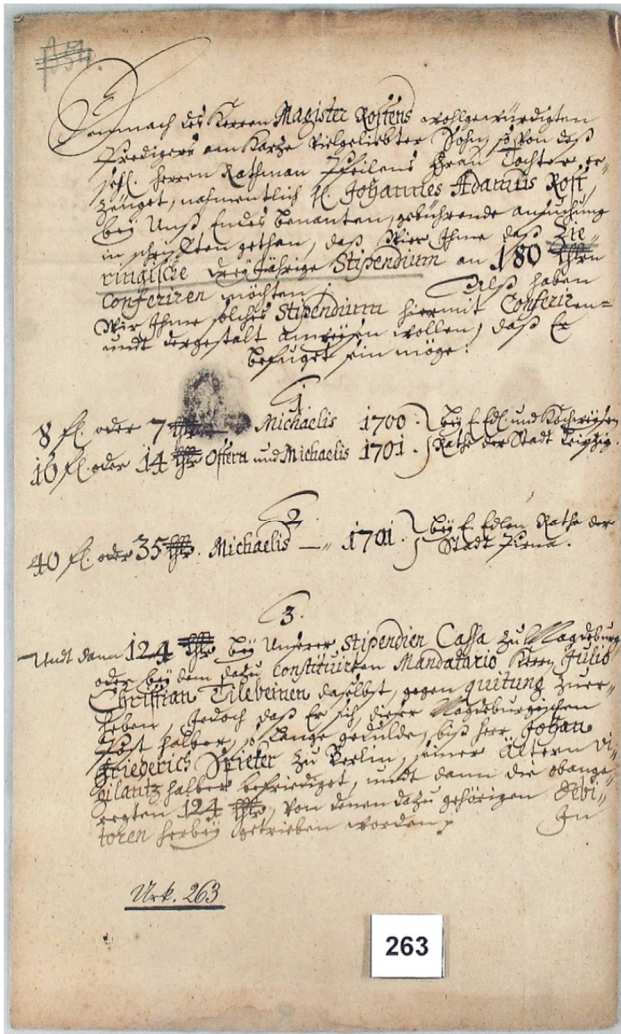 Demnach des Herren Magister Rostens wollgewürdigten
Predigers am Vielgeliebter Sohn, so von deß
sehl. Herren Rathman Pfeilens Frau Tochter er-
zeuget, nahmentlich H Johannes Adamus Rost,
bey Unß Endes benanten, gebührende ansuchung
in schrifften gethan, daß Wir Ihme daß Zie-
ringische dreyjährige Stipendium an 180 Thrn
Conferiren möchten; Alß haben
Wir Ihme solches Stipendium hiermit Conferiren-
undt dergestalt anweisen wollen, daß Er
befuget sein möge:
1.
8 fl. oder 7 Thr Michaelis 1700. bey E. Edl. und Hochweisen
16 fl. oder 14 Thr Ostern und Michaelis 1701. Rathe der Stadt Leipzig.
2.
40 fl. oder 35 Thr. Michaelis — " 1701. bey E. Edlen Rathe der
Stadt Pirna.
3.
Undt dann 124 Thr bey Unserer Stipendien Cassa zu Magdeburg
oder bey dem dazu Constituirten Mandatario Herrn Julio
Christian Tilebeinen daselbst, gegen quitung zuer-
heben, Jedoch daß Er sich, dieser Magdeburgischen
Post halber, so lange gedulde, biß Herr Johan
Friederich zu Berlin, seiner Ältern Vi-
gilantz halber befriediget, undt dann die obange-
regten 124 Thr, von denen dazu gehörigen Debi-
toren herbey getrieben worden;
In
Urk. 263
263